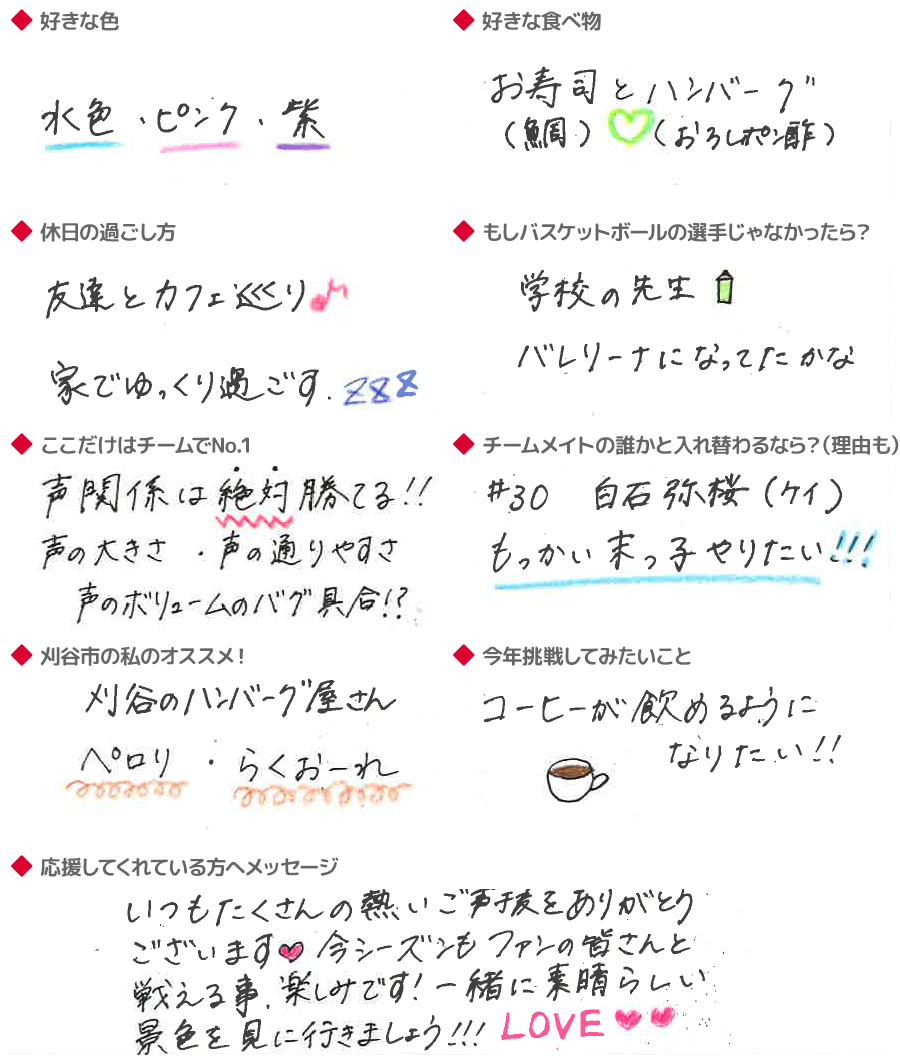 ◆ 好きな色
水色・ピンク・紫
◆ 好きな食べ物
お寿司とハンバーグ
(鯛) (おろしポン酢)
◆ 休日の過ごし方
友達とカフェ巡り
家でゆっくり過ごす. zzz
◆ もしバスケットボールの選手じゃなかったら?
学校の先生
バレリーナになってたかな
◆ ここだけはチームでNo.1
声関係は絶対勝てる!!
声の大きさ ・声の通りやすさ
声のボリュームのバグ具合!?
◆ チームメイトの誰かと入れ替わるなら?(理由も)
#30 白石弥桜(ケイ)
もっかい末っ子やりたい!!!
◆ 刈谷市の私のオススメ!
刈谷のハンバーグ屋さん
ペロリ ・ らくおーれ
◆ 今年挑戦してみたいこと
コーヒーが飲めるように
なりたい!!
◆ 応援してくれている方へメッセージ
いつもたくさんの熱いご声援をありがとう
ございます 今シーズンもファンの皆さんと
戦える事、楽しみです!一緒に素晴らしい
景色を見に行きましょう!!! LOVE